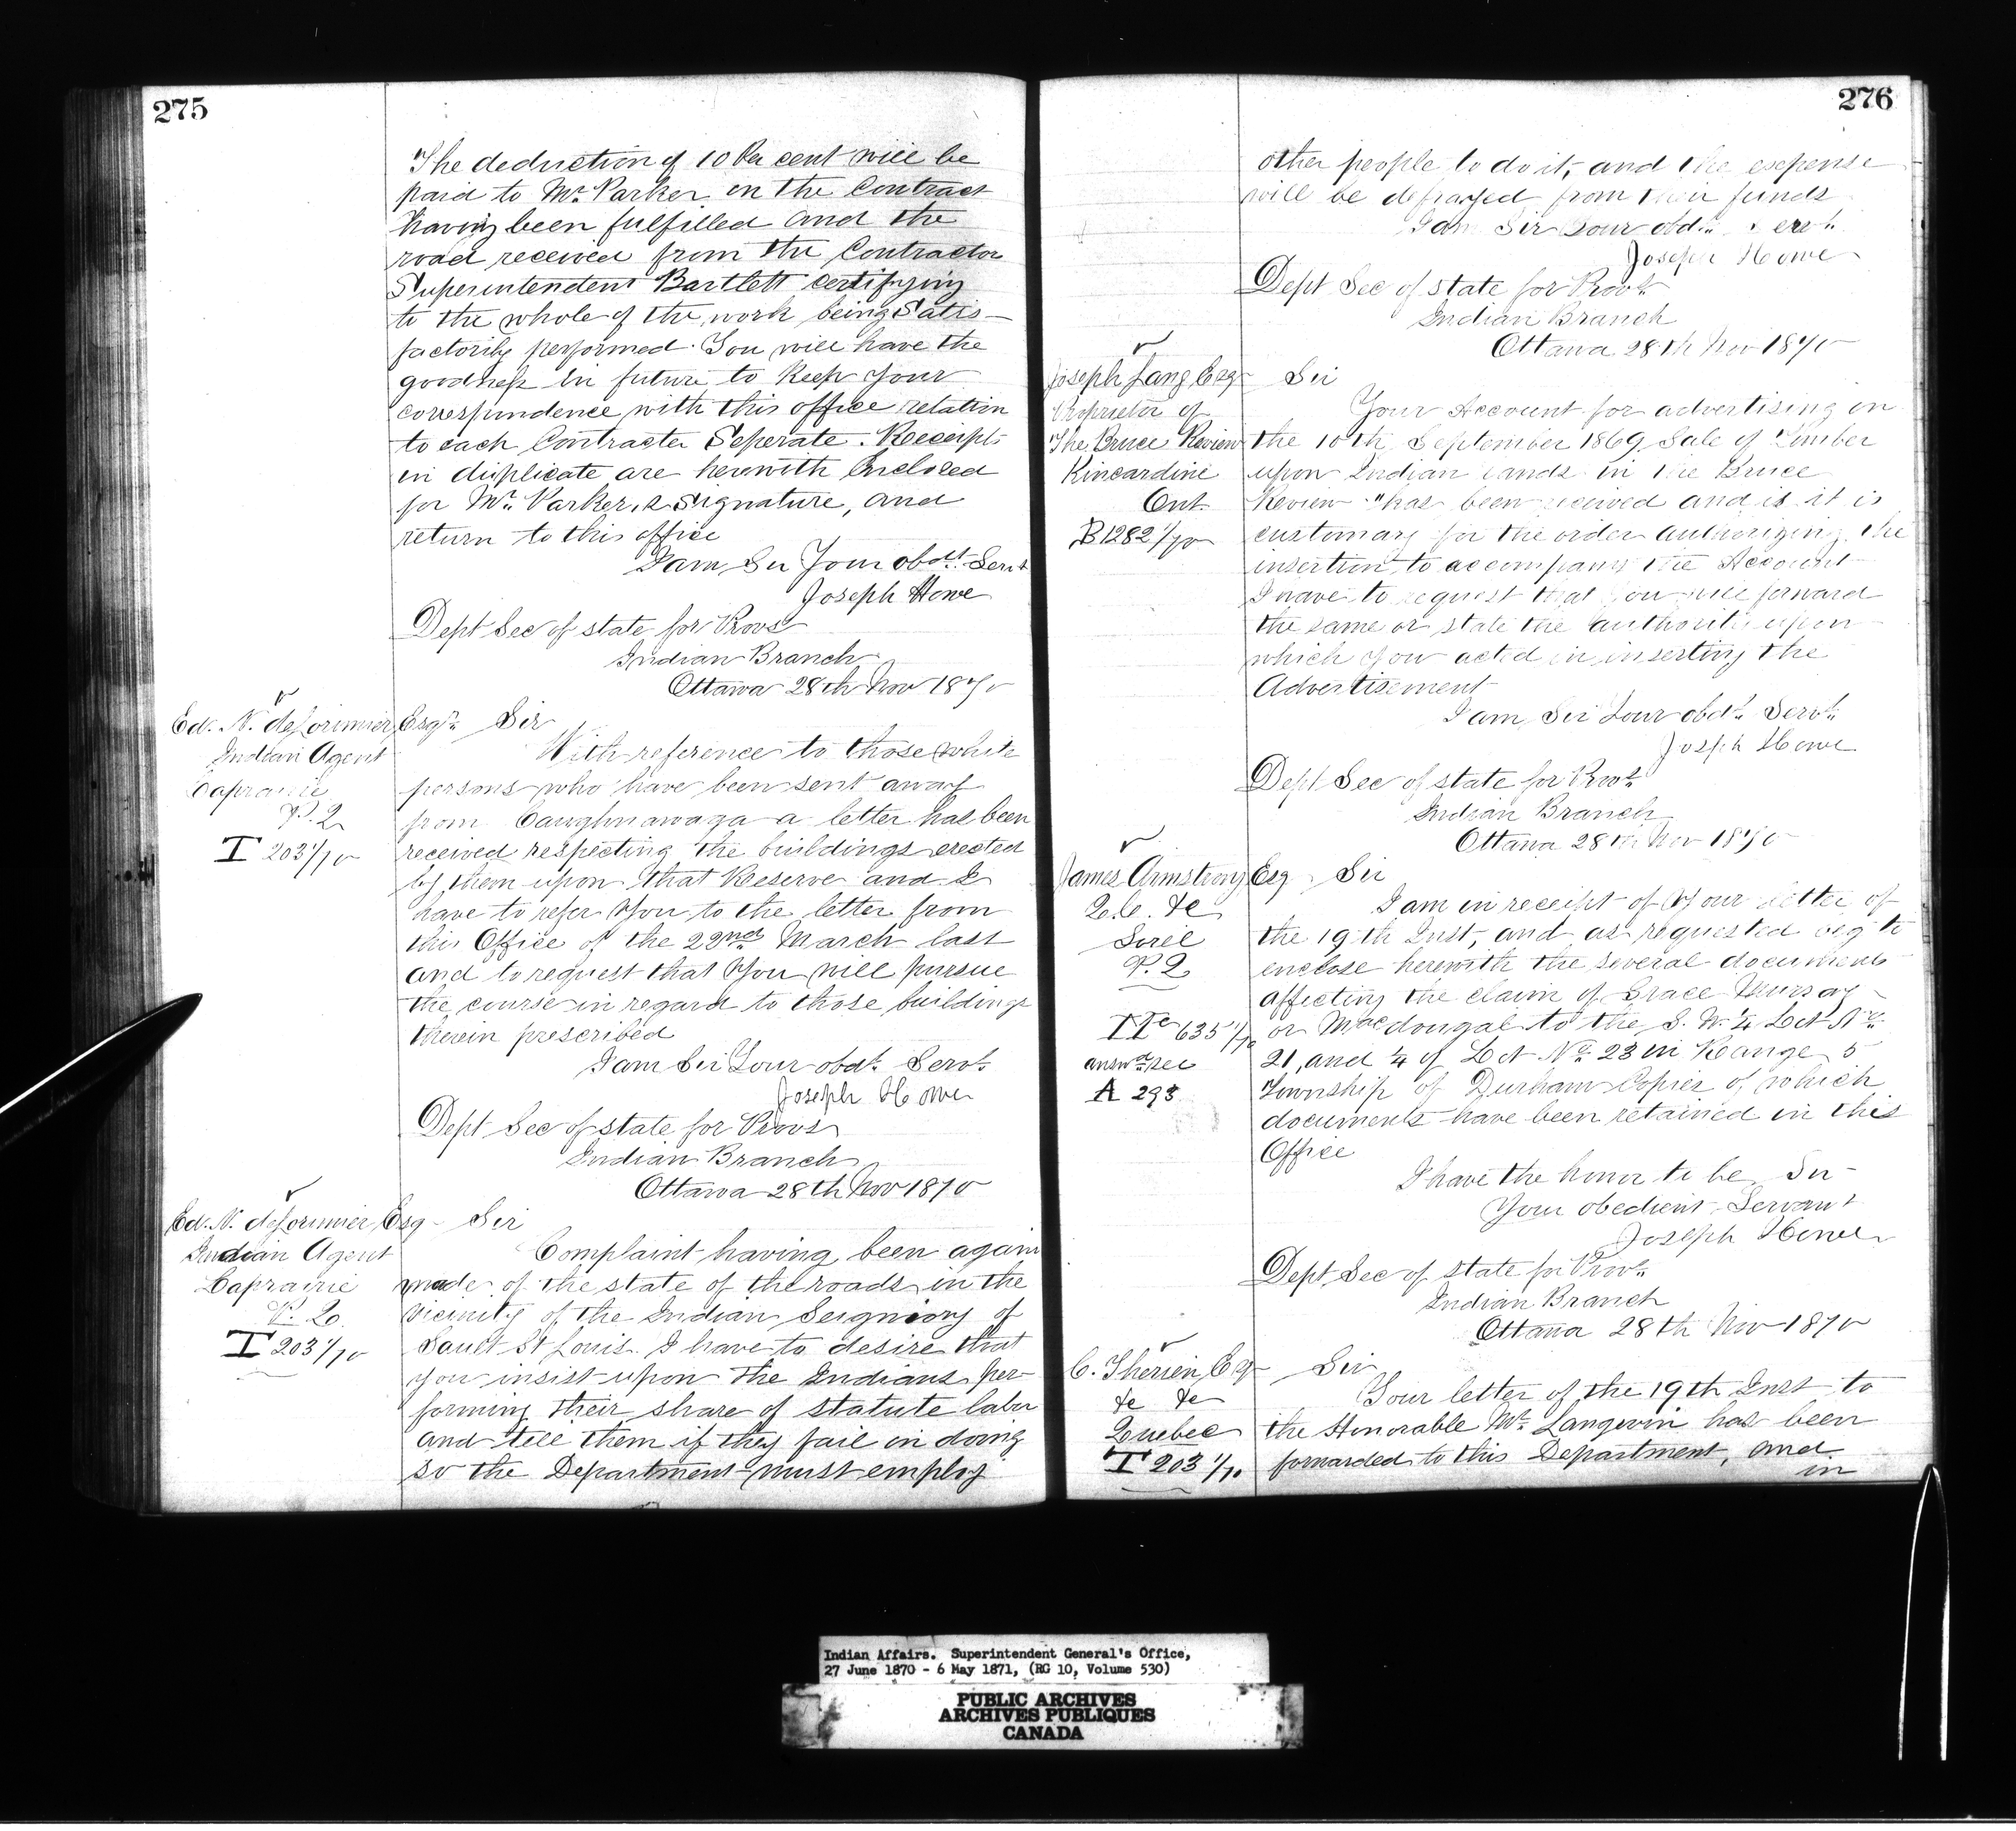 275
The deduction of 10 Per cent will be
paid to Mr. Parker on the Contract
having been fulfilled and the
road received from the Contractor
Superintendent Bartlett certifying
to the whole of the work being Satis-
factorily performed. You will have the
goodness in future to Keep Your
correspondence with this office relation
to each Contractor Seperate. Receipts
in duplicate are herewith Enclosed
for Mr. Parker,s Signature, and
return to this office
I am Sir Your obdt. Servt
Joseph Howe
Dept Sec of state for Provs
Indian Branch
Ottawa 28th Nov 1870
Ed. N. deLorimier, Esqr. Sir
Indian Agent
Laprairie
P. Q
T 203 1/70
With reference to those white
persons who have been sent away
from Caughnawaga a letter has been
received respecting the buildings erected
by them upon that Reserve and I
have to refer You to the letter from
this Office of the 22nd March last
and to request that You will pursue
the course in regard to those buildings
therein prescribed
I am Sir Your obdt. Servt.
Joseph Howe
Dept Sec of state for Provs
Indian Branch
Ottawa 28th Nov 1870
Ed. N. deLorimier, Esq Sir
Indian Agent
Laprairie
P. Q.
T 203 1/70
Complaint having been again
made of the state of the roads in the
vicinity of the Indian Seigniory of
Sault St Louis. I have to desire that
you insist upon the Indians per-
forming their share of statute labor
and tell them if they fail in doing
so the Department must employ
276
other people to do it, and the expense
will be defrayed from their funds
I am Sir Your obdt. Servt.
Joseph Howe
Dept Sec of state for Provs.
Indian Branch
Ottawa 28th Nov 1870
Joseph Lang, Esq Sir
Proprietor of
The Bruce Review
Kincardine
Ont
B 1282 1/70
Your Account for advertising on
the 10th September 1869 Sale of Timber
upon Indian lands in the Bruce
Review "has been received and is it is
customary for the order authorizing the
insertion to accompany the Account
I have to request that you will forward
the same or state the authority upon
which You acted in inserting the
Advertisement
I am Sir Your obdt. Servt.
Joseph Howe
Dept Sec of state for Provs.
Indian Branch
Ottawa 28th Nov 1870
James Armstrong Esq Sir
Q.C. &c
Sorel
P. Q
635 1/70
answd. see
A 293
I am in receipt of Your letter of
the 19th Inst, and as requested beg to
enclose herewith the several documents
affecting the claim of Grace
or Macdougal to the S. W. 1/4 Lot No.
21, and 1/4 of Lot No. 23 in Range 5
Township of Durham Copies of which
documents have been retained in this
Office
I have the honor to be Sir
Your obedient Servant
Joseph Howe
Dept Sec of state for Provs.
Indian Branch
Ottawa 28th Nov 1870
C. Therien, Esq Sir
&c &c
Quebec
T 203 1/70
Your letter of the 19th Inst to
the Honorable Mr. Langevin has been
forwarded to this Department, and
in
Indian Affairs. Superintendent General's Office,
27 June 1870 - 6 May 1871, (RG 10, Volume 530)
PUBLIC ARCHIVES
ARCHIVES PUBLIQUES
CANADA